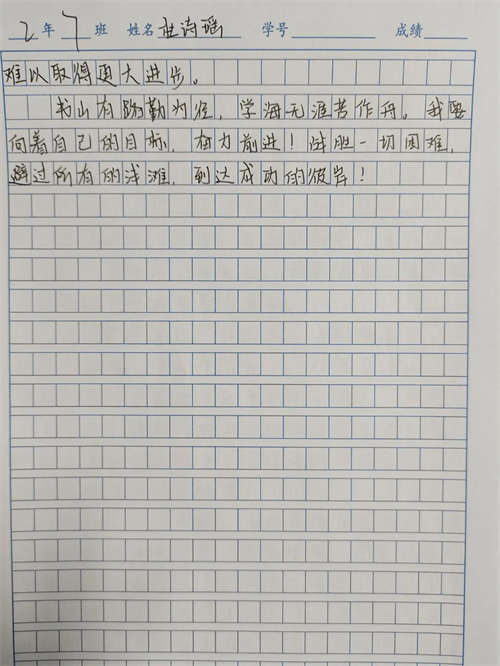 2年7班 姓名杜诗瑶 学号 成绩
难以取得更大进步。
书山有路勤为径，学海无涯苦作舟。我要
向着自己的目标，奋力前进！战胜一切困难，
避过所有的浅滩，到达成功的彼岸！